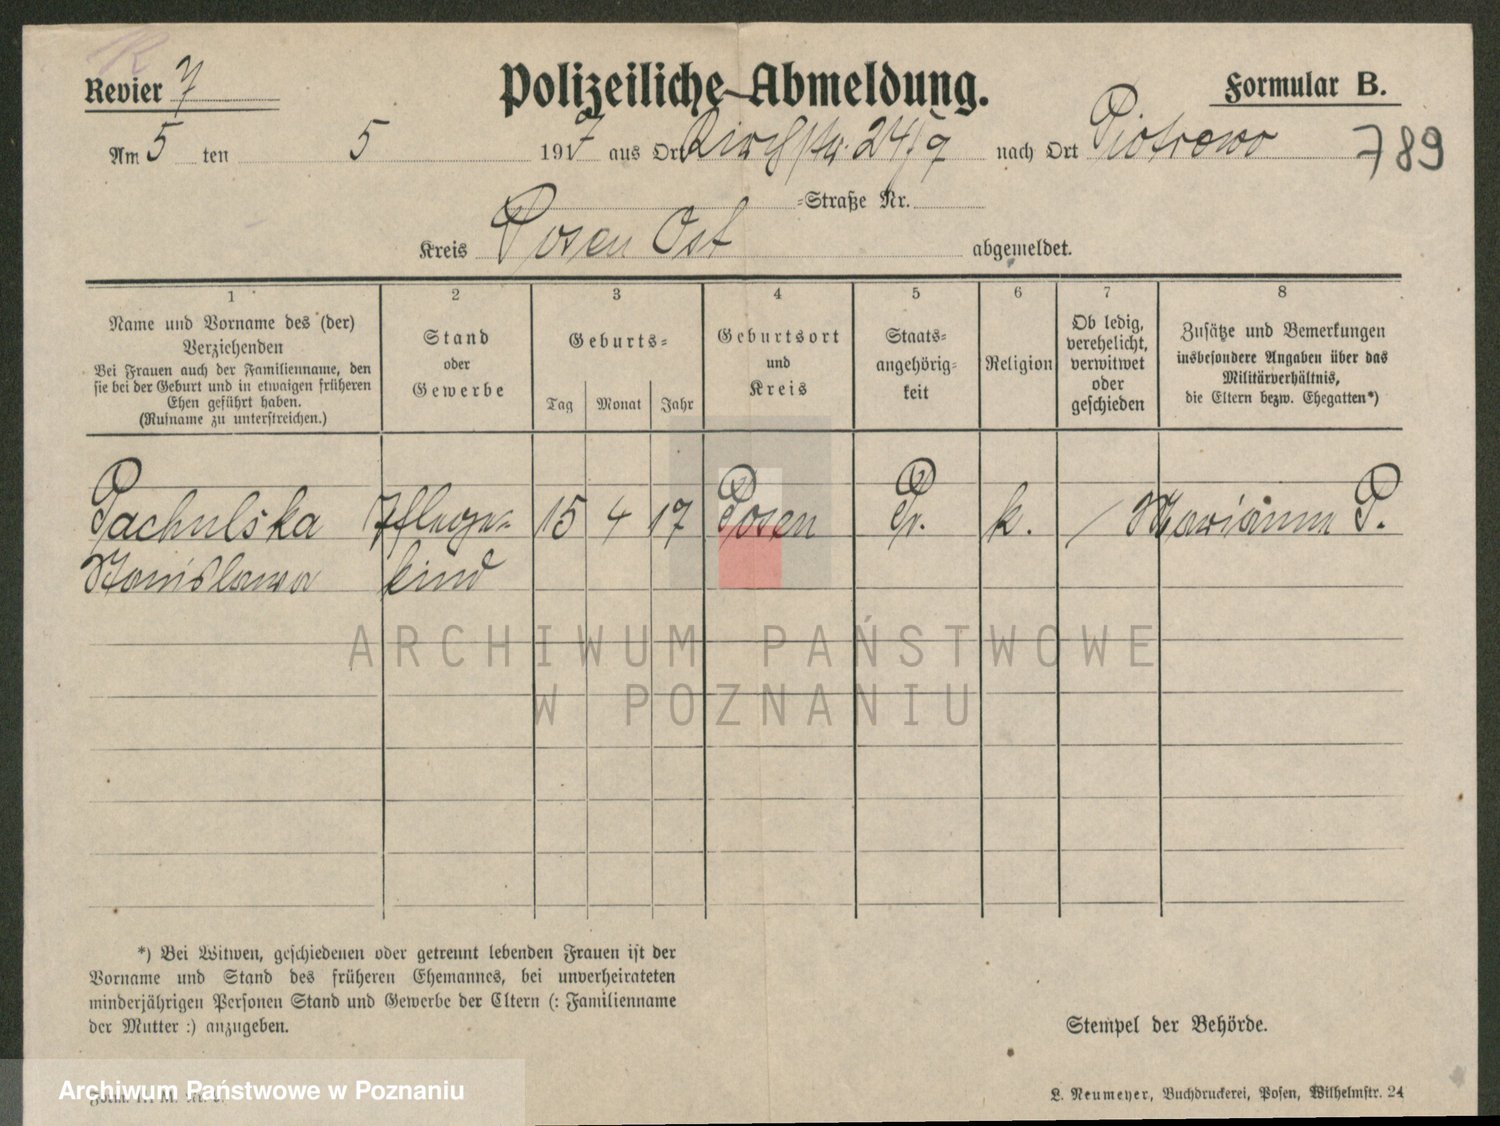 Revier 7
Polizeiliche Abmeldung.
Formular B.
Am 5 ten 5 1917 aus Ort Kirchstr. 24/ nach Ort Piotrowo 789
-Straße Nr.
Kreis Posen Ost abgemeldet.
1 2 3 4 5 6 7 8
Name und Vorname des (der)
Verziehenden
Bei Frauen auch der Familienname, den
sie bei der Geburt und in etwaigen früheren
Ehen geführt haben.
(Rufname zu unterstreichen.)
Stand
oder
Gewerbe
Geburts-
Tag Monat Jahr
Geburtsort
und
Kreis
Staats-
angehörig-
keit
Religion
Ob ledig,
verehelicht,
verwitwet
oder
geschieden
Zusätze und Bemerkungen
insbesondere Angaben über das
Militärverhältnis,
die Eltern bezw. Ehegatten*)
Pachulska Pflege- 15 4 17 Posen Pr. k. / Marianna P.
Stanislawa kind
ARCHIWUM PAŃSTWOWE
W POZNANIU
*) Bei Witwen, geschiedenen oder getrennt lebenden Frauen ist der
Vorname und Stand des früheren Ehemannes, bei unverheirateten
minderjährigen Personen Stand und Gewerbe der Eltern (: Familienname
der Mutter :) anzugeben.
Stempel der Behörde.
Archiwum Państwowe w Poznaniu
L. Neumeyer, Buchdruckerei, Posen, Wilhelmstr. 24